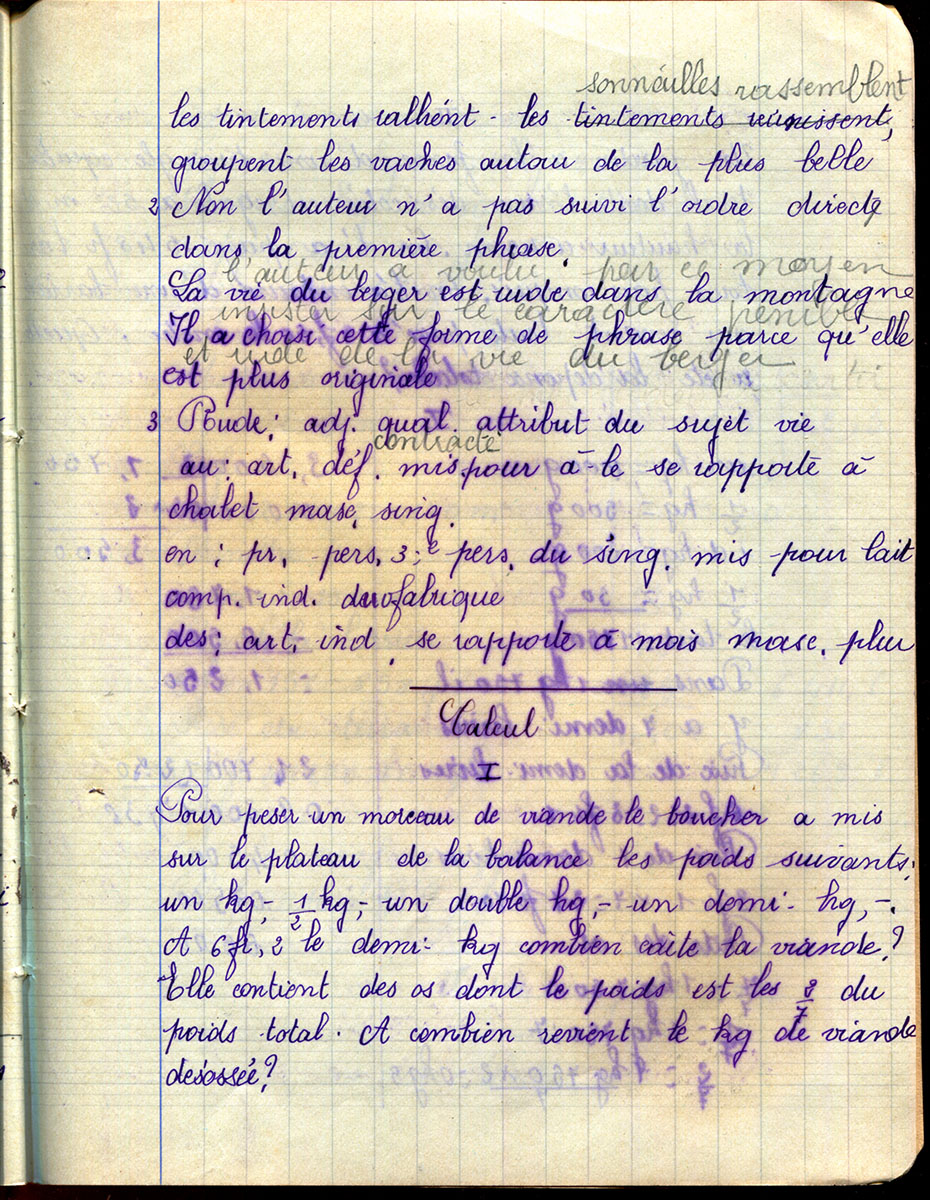 sonnailles rassemblent
les tintements rallient - les tintements réunissent,
groupent les vaches autou de la plus belle
2 Non l'auteur n'a pas suivi l'ordre directe
dans la première phrase.
l'auteur a voulu, par ce moyen
La vie du berger est rude dans la montagne
insister sur le caractère pénible
Il a choisi cette forme de phrase parce qu'elle
et rude de la vie du berger
est plus originale
3 Rude : adj. qual. attribut du sujet vie
contracté
au : art. déf. mis pour à-le se rapporte à
chalet masc. sing.
en : pr. pers. 3e pers. du sing. mis pour lait
comp. ind. du v fabrique
des : art. ind. se rapporte à mois masc. plur
Calcul
I
Pour peser un morceau de viande le boucher a mis
sur le plateau de la balance les poids suivants :
un kg, - 1/2 kg, - un double hg, - un demi-hg, -.
A 6 fr, 2 le demi-kg combien coûte la viande ?
Elle contient des os dont le poids est les 2/7 du
poids total. A combien revient le kg de viande
désossée ?